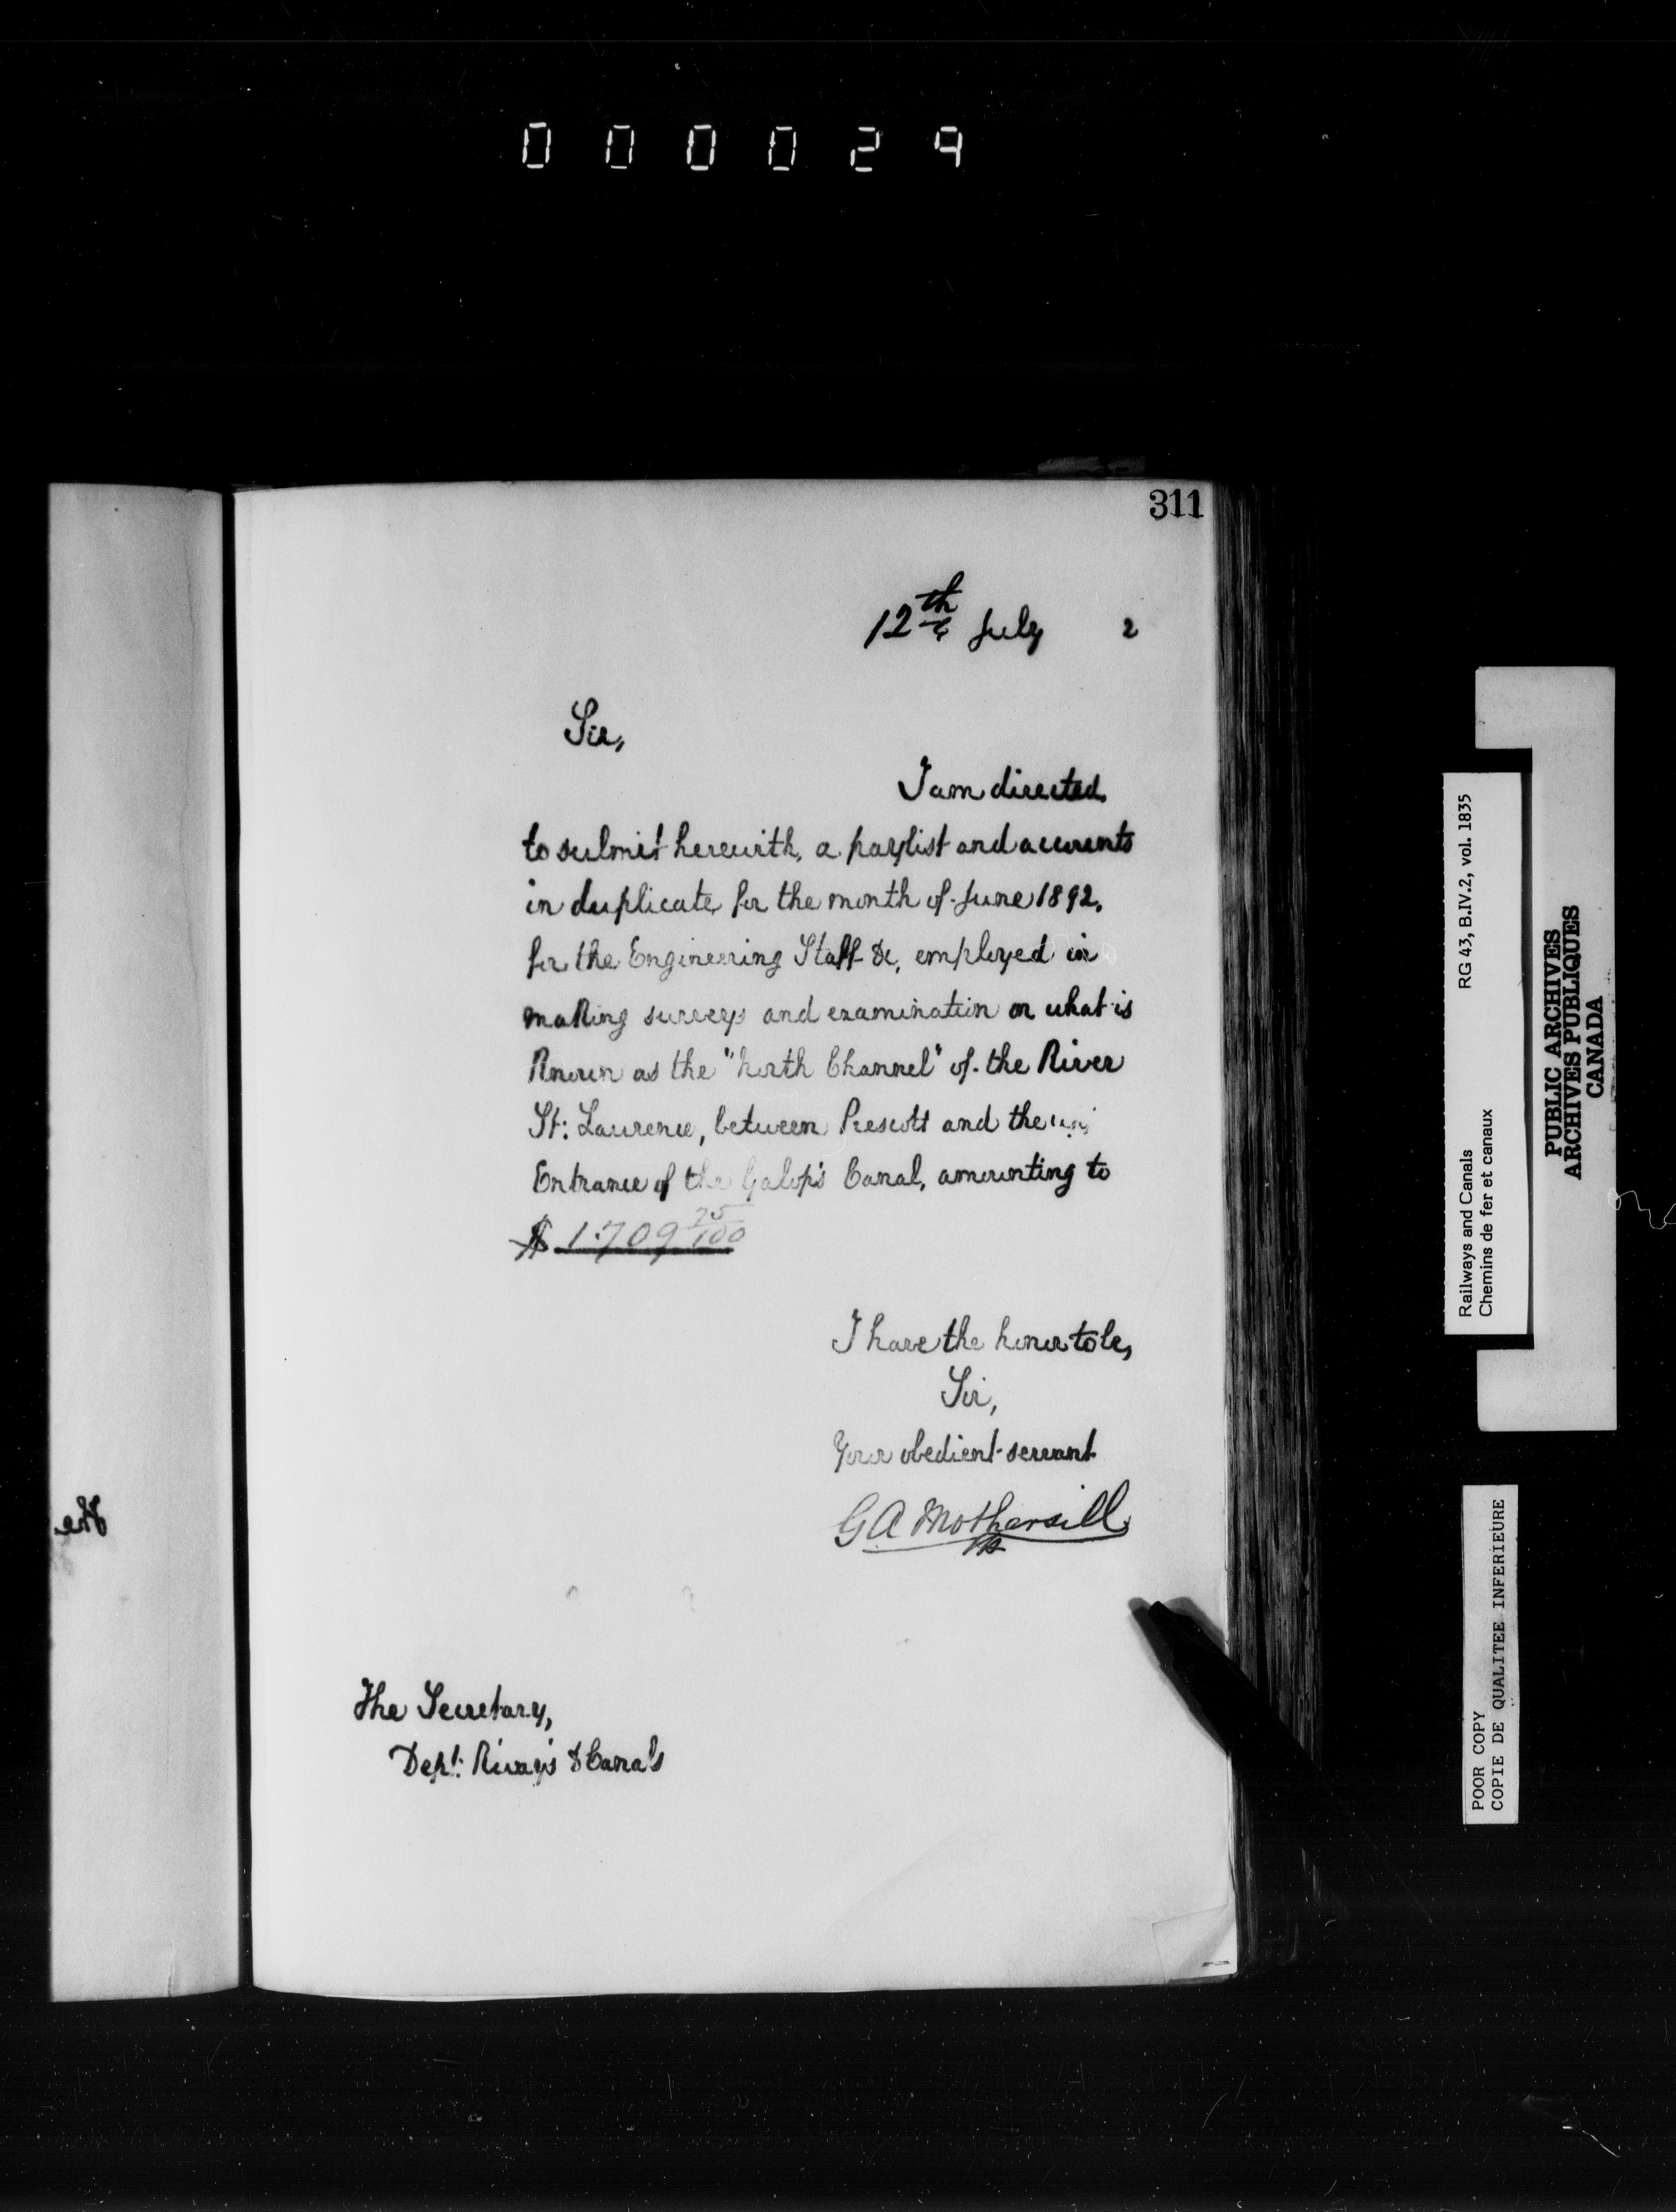 000029
311
12th July 2
Sir,
I am directed
to submit herewith, a paylist and accounts
in duplicate for the month of June 1892,
for the Engineering Staff &c, employed in
making surveys and examination on what is
Known as the "North Channel" of the River
St: Lawrence, between Prescott and the
Entrance of the Galop's Canal, amounting to
$ 1.709 25/100
I have the honor to be,
Sir,
Your obedient servant
G A Mothersill
The Secretary,
Dept: Rways & Canals
RG 43, B.IV.2, vol. 1835
Railways and Canals
Chemins de fer et canaux
PUBLIC ARCHIVES
ARCHIVES PUBLIQUES
CANADA
POOR COPY
COPIE DE QUALITEE INFERIEURE